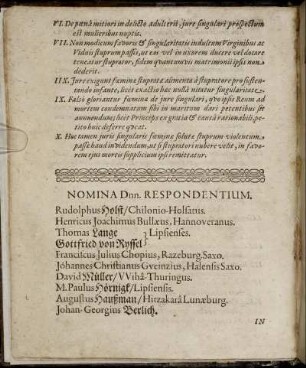 VI. De pœnâ mitiori in delicto adulterij, jure singulari prospectum
est mulieribus nuptis.
VII. Non modicum favoris & singularitatis indultum Virginibus ac
Viduis stuprum passis, ut eas vel in uxorem ducere vel dotare
teneatur stuprator, fidem quamvis de matrimonij ipsis non
dederit.
IIX. Jure exigunt fœmina stuprata alimenta à stupratore pro susten-
tando infante, licet ex actu hac nulli nitatur singularitate.
IX. Falsò gloriantur fœminæ de jure singulari, quo ipsis Reum ad
mortem condemnatum sibi in maritum dari petentibus sit
annuendum; licet Princeps ex gratia & causâ rationabili, pe-
titio huic deferre queat.
X. Hoc tamen juris singularis fœmina salute stuprum violentum
passæ haud invidendum, ut si stupratori nubere velit, in favo-
rem ejus mortis supplicium ipsi remittatur.
NOMINA Dnn. RESPONDENTIUM.
Rudolphus Holst / Chilonio-Holsatus.
Henricus Joachimus Bullæus, Hannoveranus.
Thomas Lange } Lipsienses.
Gottfried von Ryssel
Franciscus Julius Chopius, Razeburg. Saxo.
Johannes Christianus Gveinzius, Halensis Saxo.
David Müller / VVihâ-Thuringus.
M. Paulus Hörnigk / Lipsiensis.
Augustus Haußman / Hitzakarâ Lunæburg.
Johan-Georgius Berlich.
IN